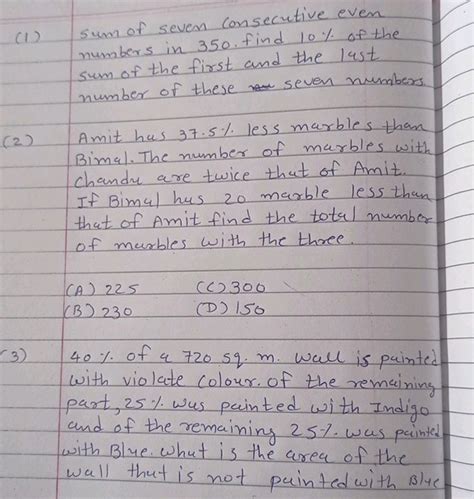 (1) sum of seven consecutive even
numbers in 350. find 10% of the
sum of the first and the last
number of these seven numbers
(2) Amit has 37.5% less marbles than
Bimal. The number of marbles with
chandu are twice that of Amit.
If Bimal has 20 marble less than
that of Amit find the total number
of marbles with the three.
(A) 225 (C) 300
(B) 230 (D) 150
(3) 40% of a 720 sq. m. wall is painted
with violate colour. of the remaining
part, 25% was painted with Indigo
and of the remaining 25% was painted
with Blue. what is the area of the
wall that is not painted with Blue